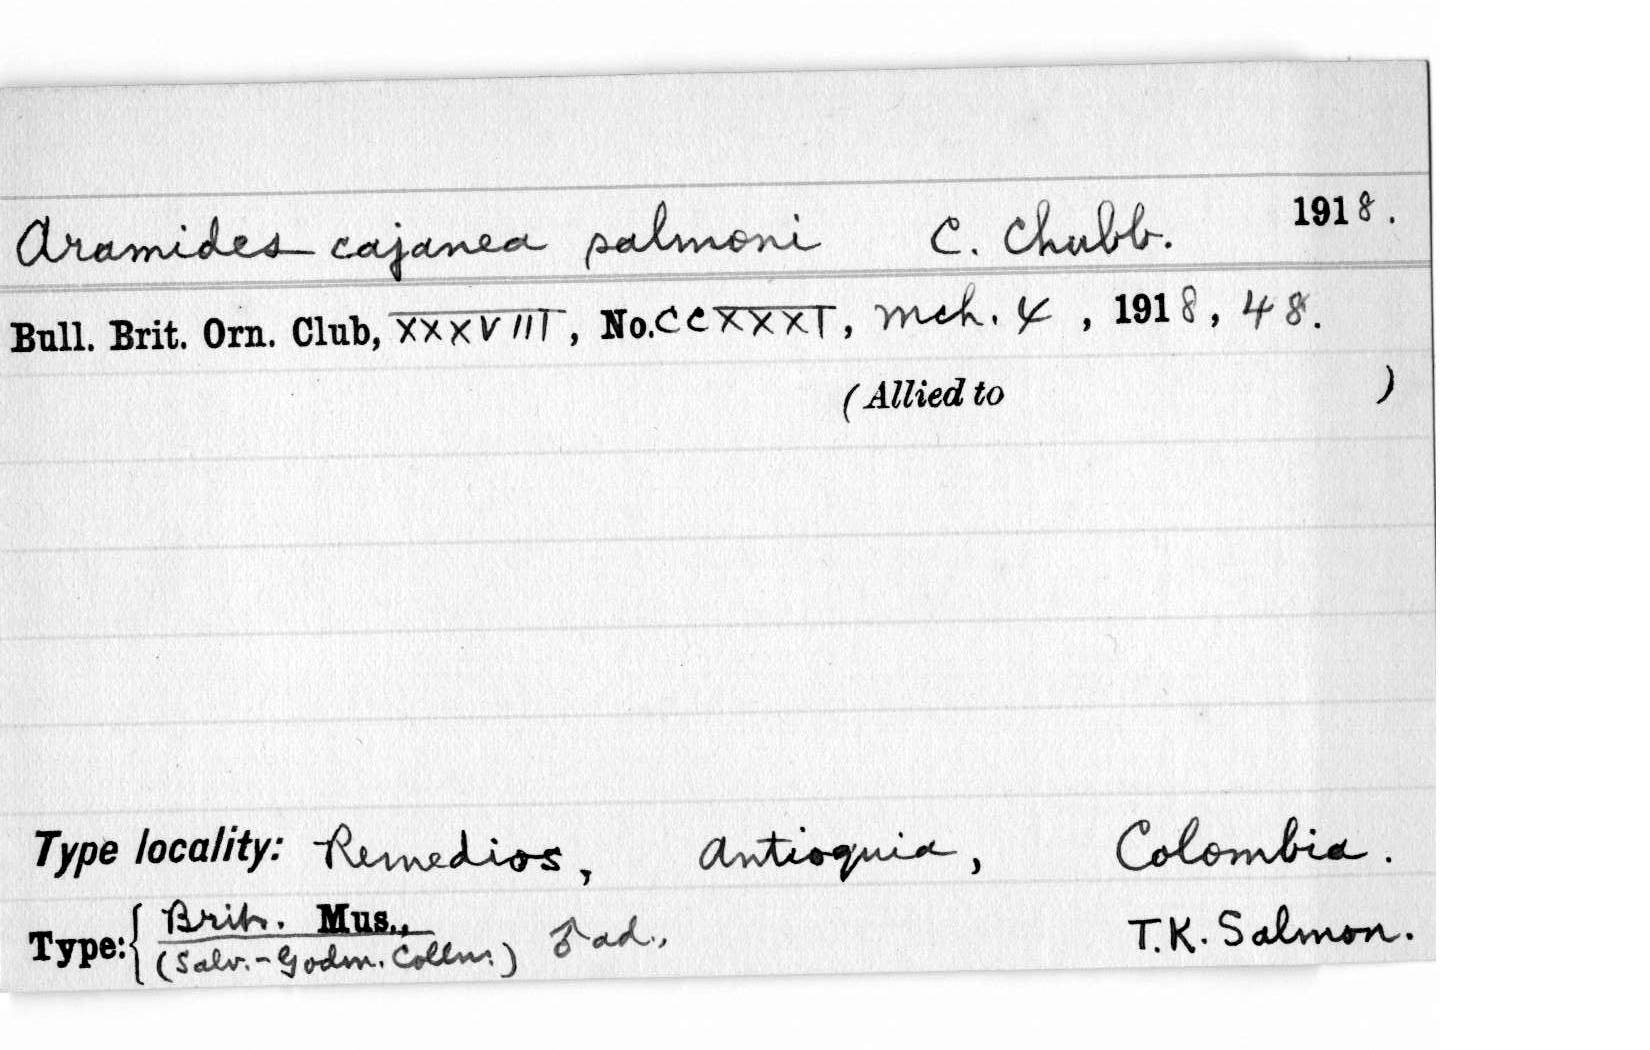 Aramides cajanea salmoni C. Chubb. 1918.
Bull. Brit. Orn. Club, XXXVIII, No. CCXXXI, Mch. 4, 1918, 48.
(Allied to )
Type locality: Remedios, Antioquia, Colombia.
Type: { Brit. Mus., ♂ ad., T.K. Salmon.
(Salv.-Godm. Colln.)